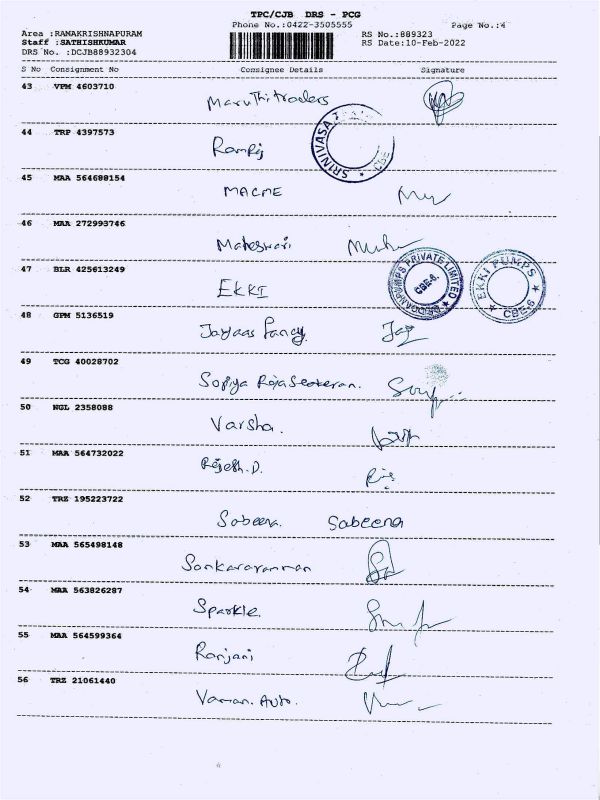 TPC/CJB DRS - PCG
Phone No.:0422-3505555 Page No.:4
Area :RAMAKRISHNAPURAM RS No.:889323
Staff :SATHISHKUMAR RS Date:10-Feb-2022
DRS No. :DCJB88932304
S No Consignment No Consignee Details Signature
43 VPM 4603710
Maruthi traders
44 TRP 4397573
SRINIVASA CBE
45 MAA 564688154
MACME
46 MAA 272993746
Maheswari
47 BLR 425613249
EKKI
PUMPS PRIVATE LIMITED CBE-6.
EKKI PUMPS CBE-6
48 GPM 5136519
Jayaas Fancy Jay
49 TCG 40028702
Sopiya Rajasekaran.
50 NGL 2358088
Varsha.
51 MAA 564732022
Rajesh.D.
52 TRZ 195223722
Sabeena. Sabeena
53 MAA 565498148
Sankararamman
54 MAA 563826287
Sparkle.
55 MAA 564599364
Ranjani
56 TRZ 21061440
Vaman. Auto.